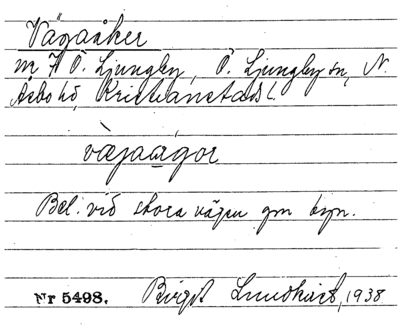 Vägaåker
m F Ö. Ljungby, Ö. Ljungby sn, N.
Åsbo hd, Kristianstads l.
vägaågor
Bel. vid stora vägen gm byn.
Nr 5498. Birgit Lundkvist, 1938